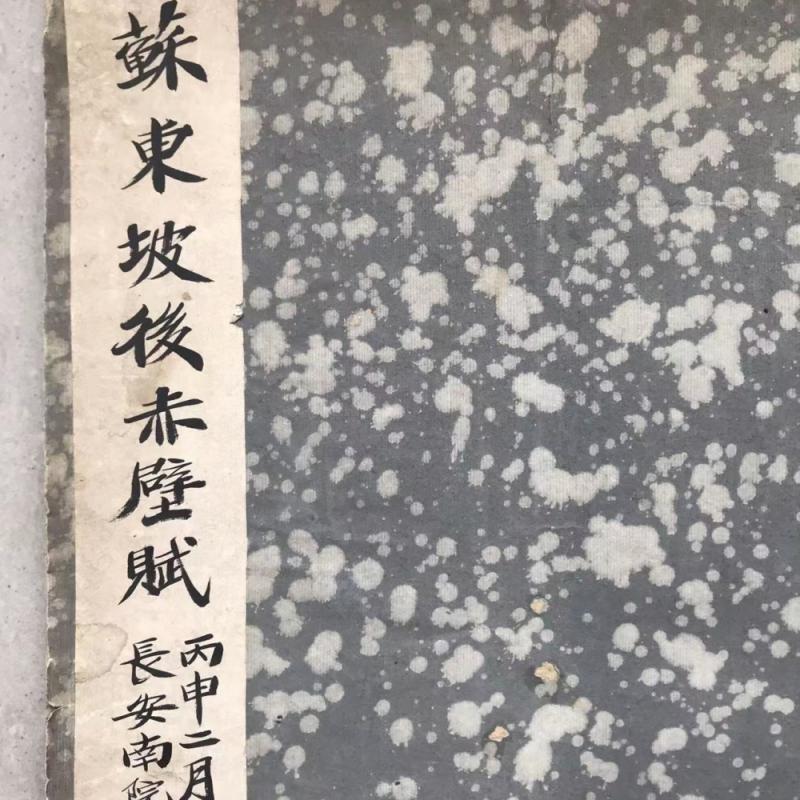 蘇東坡後赤壁賦
丙申二月
長安南院